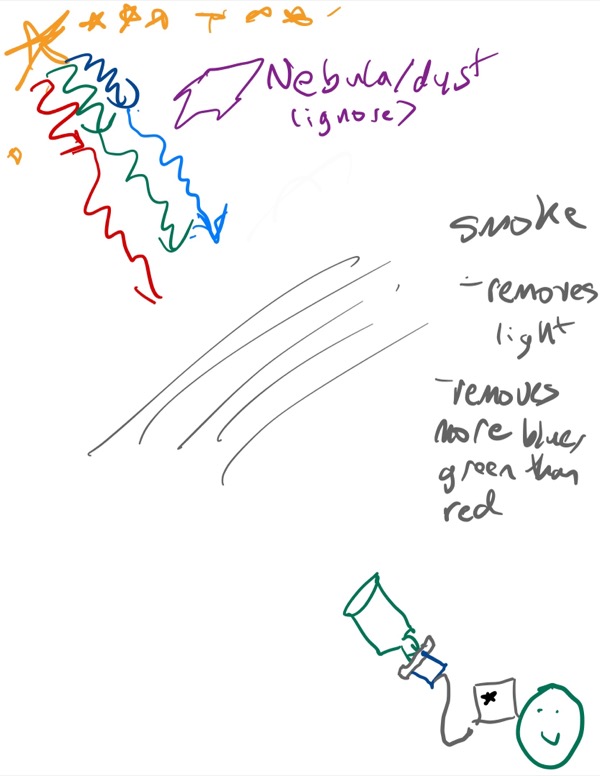 Nebula/dust
(ignore)
smoke
- removes
light
- removes
more blue,
green than
red